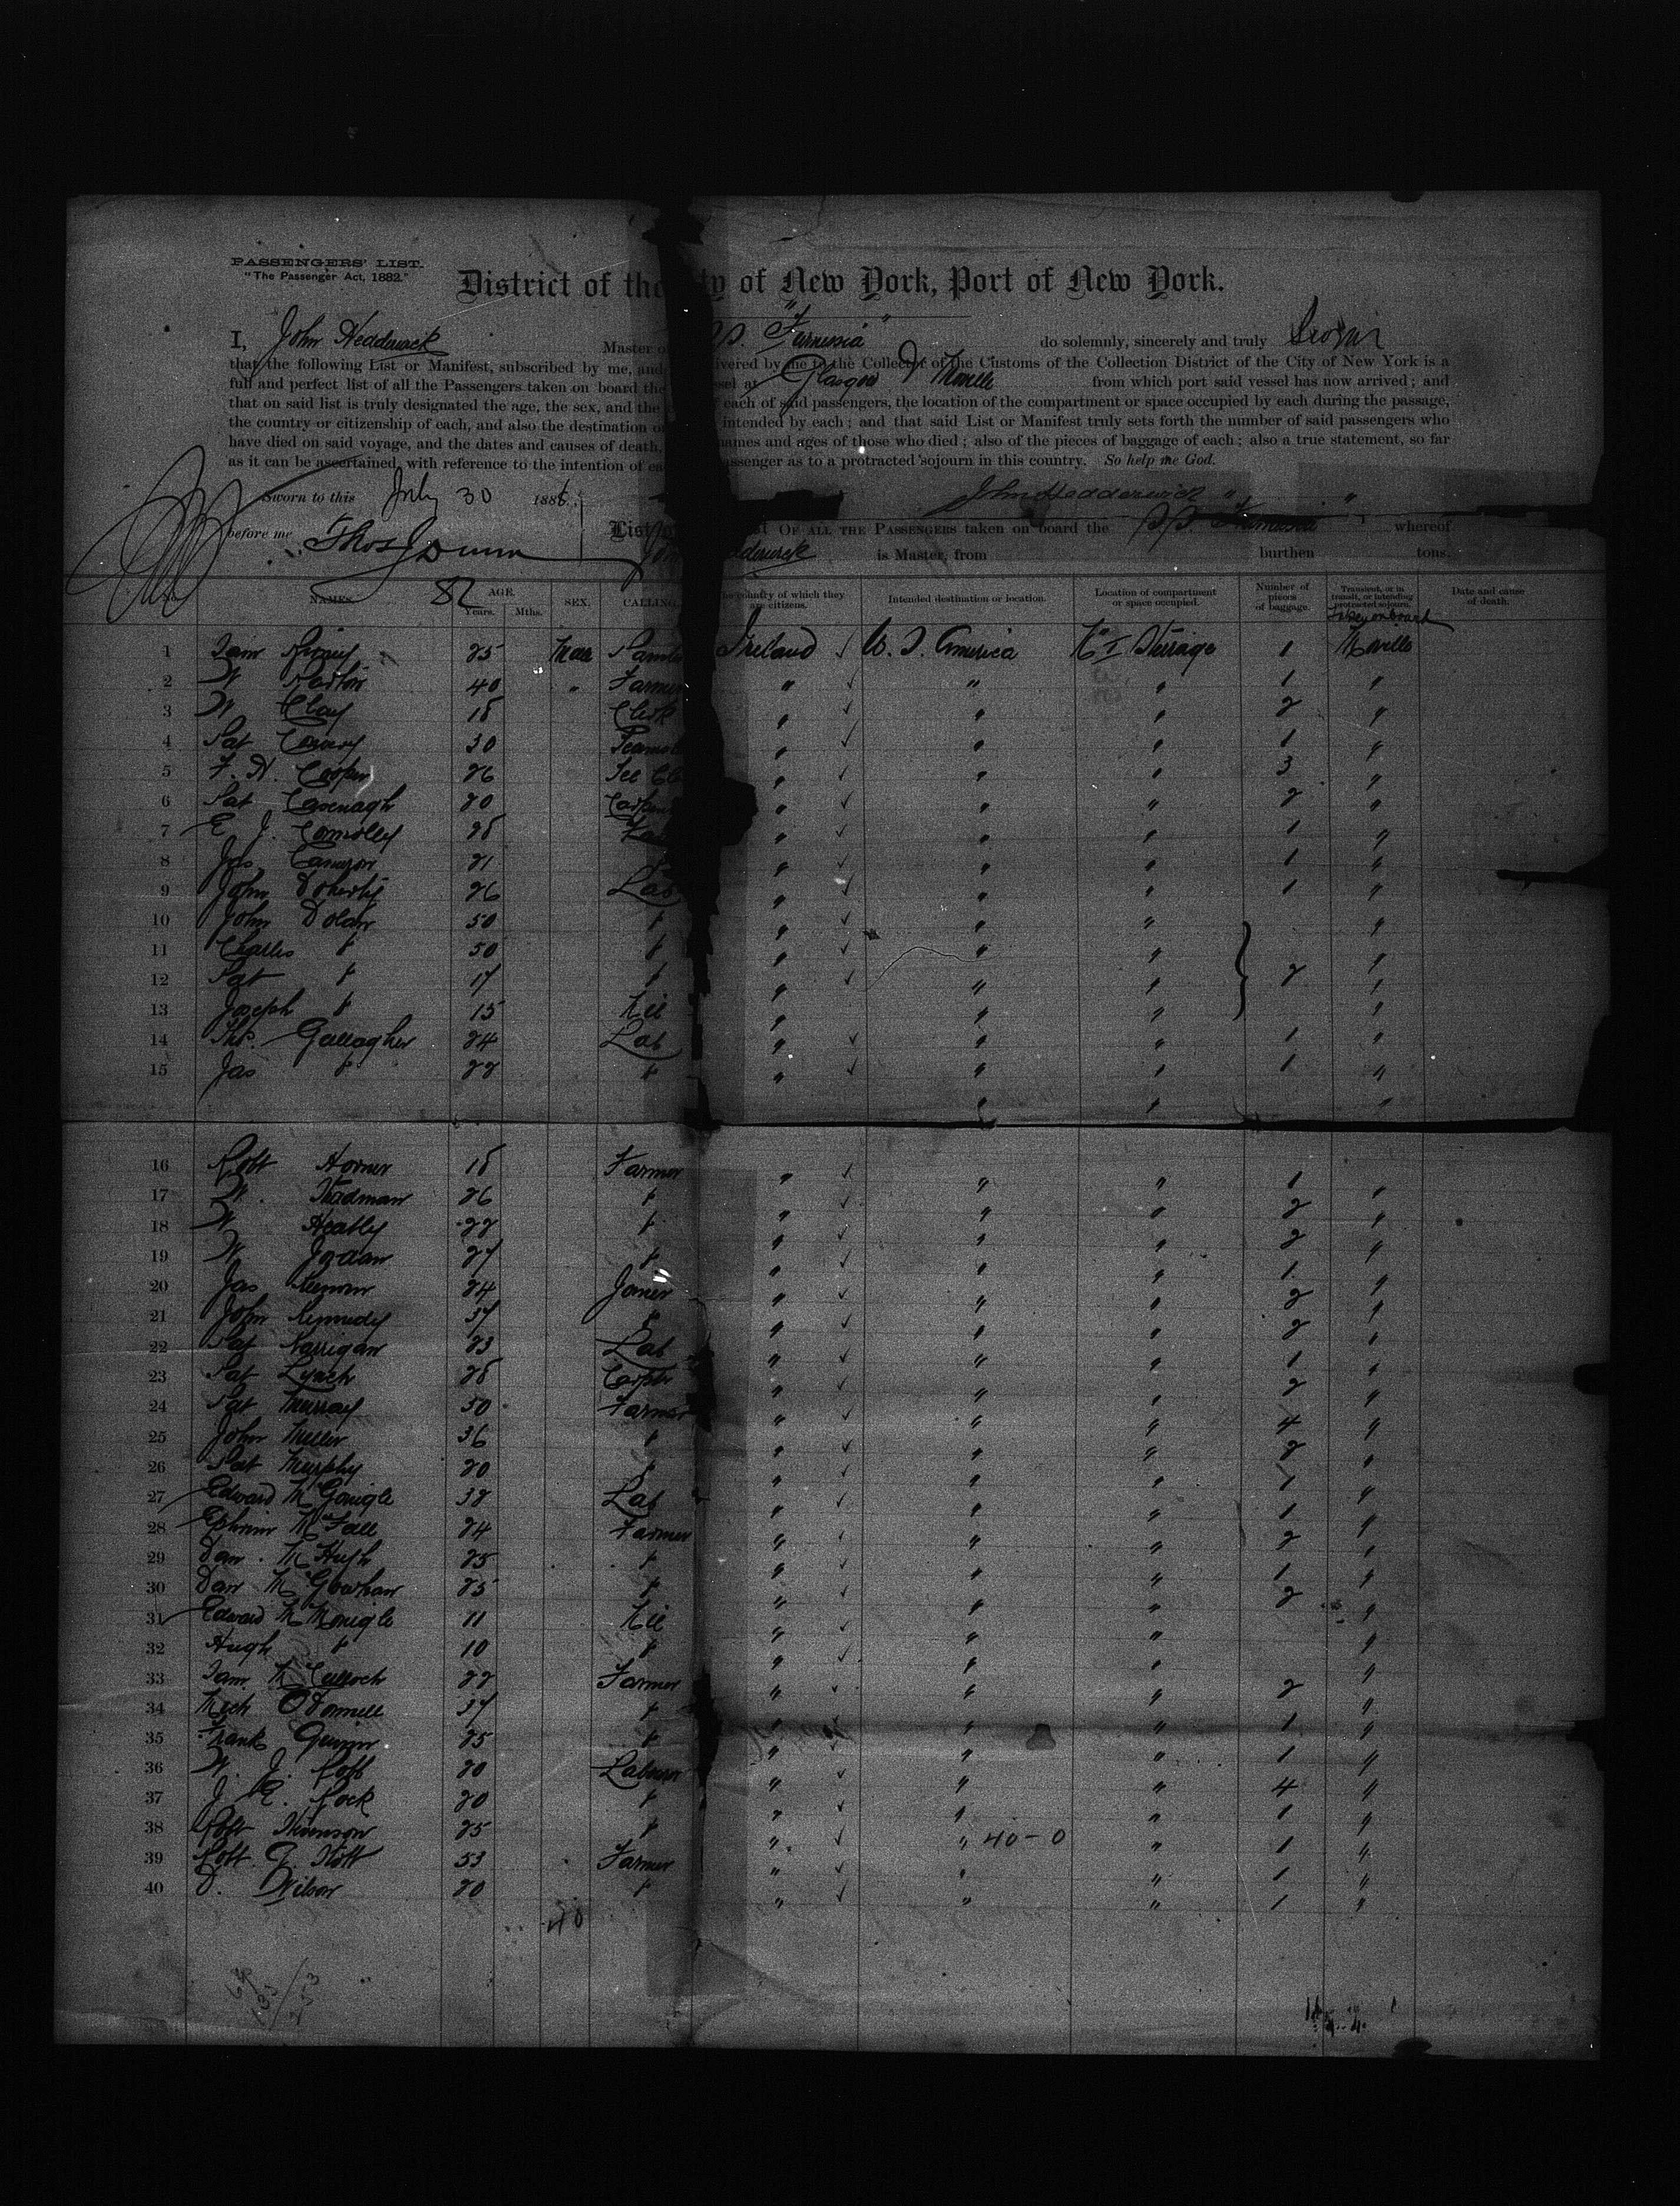 PASSENGERS' LIST.
"The Passenger Act, 1882."
District of the ty of New York, Port of New York.
I, John Hedderwick Master of S.S. "Furnessia" do solemnly, sincerely and truly Swear
that the following List or Manifest, subscribed by me, and ivered by me to the Collector of the Customs of the Collection District of the City of New York is a
full and perfect list of all the Passengers taken on board the ssel at Glasgow & Moville from which port said vessel has now arrived; and
that on said list is truly designated the age, the sex, and the each of said passengers, the location of the compartment or space occupied by each during the passage,
the country or citizenship of each, and also the destination or intended by each; and that said List or Manifest truly sets forth the number of said passengers who
have died on said voyage, and the dates and causes of death, names and ages of those who died; also of the pieces of baggage of each; also a true statement, so far
as it can be ascertained, with reference to the intention of ea assenger as to a protracted sojourn in this country. So help me God.
Sworn to this July 30 188
John Hedderwick
before me Thos J Dunn
List OF ALL THE PASSENGERS taken on board the S.S. Furnessia whereof
John dderwick is Master, from burthen tons.
82
NAMES. AGE. Years. Mths. SEX. CALLING. country of which they are citizens. Intended destination or location. Location of compartment or space occupied. Number of pieces of baggage. Transient, or in transit, or intending protracted sojourn. Date and cause of death.
1 Sam 25 Male Ireland ✓ U. S. America Steerage 1 Moville
2 W 40 " Farmer " ✓ " " 1 "
3 W Clay 18 Clerk " ✓ " " 2 "
4 Pat 30 " ✓ " " 1 "
5 F. H. Cooper 26 " ✓ " " 3 "
6 Pat Cavenagh 20 " ✓ " " 2 "
7 E J. Connolly 28 " ✓ " " 1 "
8 Jas Cameron 21 " ✓ " " 1 "
9 John Doherty 26 Lab " ✓ " " 1 "
10 John Dolan 50 " " ✓ " " "
11 Charles " 50 " " ✓ " " "
12 Pat " 17 " " ✓ " " 2 "
13 Joseph " 15 Nil " " " "
14 Thos. Gallagher 24 Lab " ✓ " " 1 "
15 Jas " 22 " " ✓ " " 1 "
16 Robt Horner 18 Farmer " ✓ " " 1 "
17 W. 26 " " ✓ " " 2 "
18 W Heatly 22 " " ✓ " " 2 "
19 W Jordan 27 " " ✓ " " 1 "
20 Jas 24 Joiner " ✓ " " 2 "
21 John Kennedy 37 " " ✓ " " 2 "
22 Pat Karrigan 23 Lab " ✓ " " 1 "
23 Pat Lynch 28 Carptr " ✓ " " 2 "
24 Pat Murray 50 Farmer " ✓ " " 4 "
25 John Miller 36 " " ✓ " " 2 "
26 Pat Murphy 20 " " ✓ " " 1 "
27 Edward McGonigle 32 Lab " ✓ " " 1 "
28 Ephrim McFall 24 Farmer " ✓ " " 2 "
29 Dan. McHugh 25 " " ✓ " " 1 "
30 Dan McGowhan 25 " " ✓ " " 2 "
31 Edward McMonigle 11 Nil " ✓ " " "
32 Hugh " 10 " " ✓ " " "
33 Sam. McCulloch 22 Farmer " ✓ " " 2 "
34 Mich O'Donnell 37 " " " " 1 "
35 Frank Quinn 25 " " ✓ " " 1 "
36 W. J. Robb 20 Labourer " ✓ " " 4 "
37 J. E. Rock 20 " " ✓ " " 1 "
38 Robt Stevenson 25 " " ✓ " 40-0 " 1 "
39 Robt. G. Stott 53 Farmer " ✓ " " 1 "
40 D. Wilson 20 " " ✓ " " 1 "
40